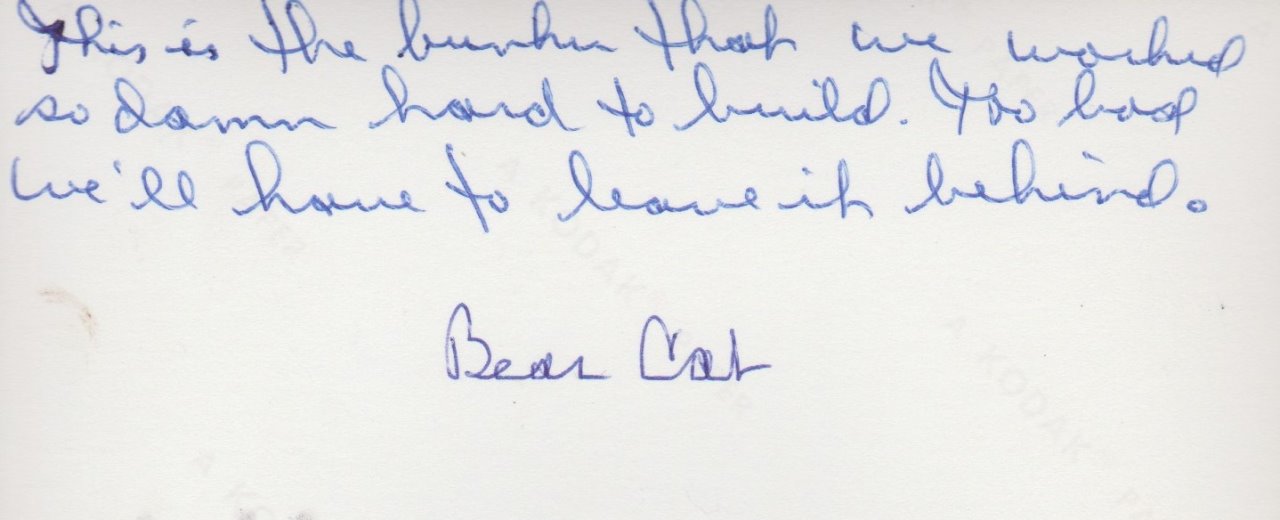 This is the bunker that we worked
so damn hard to build. Too bad
we'll have to leave it behind.
A KODAK
A KODAK
Bear Cat